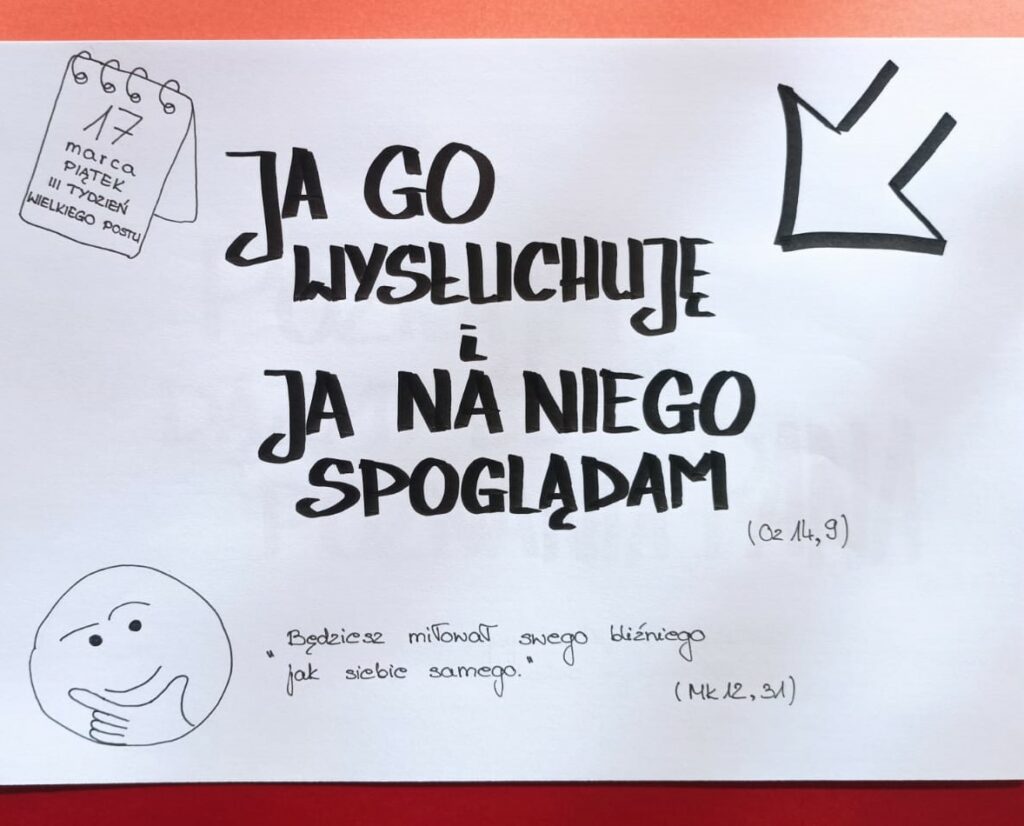 17
marca
PIĄTEK
III TYDZIEŃ
WIELKIEGO POSTU
JA GO
WYSŁUCHUJĘ
i
JA NA NIEGO
SPOGLĄDAM
(Oz 14,9)
"Będziesz miłował swego bliźniego
jak siebie samego."
(Mk 12,31)